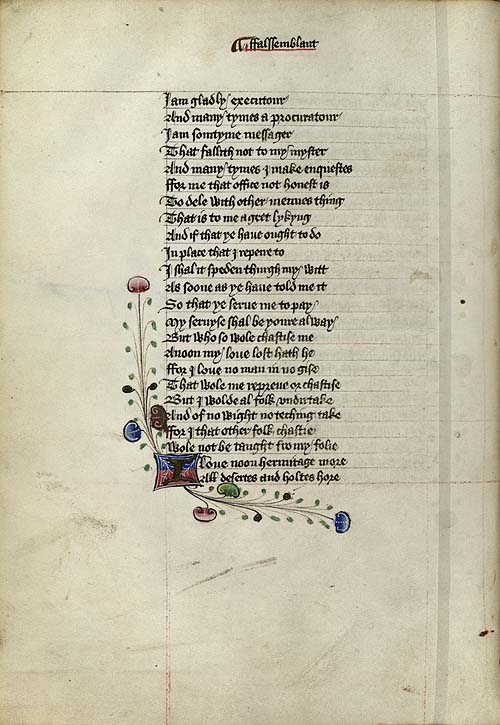 ffalssemblant
I am gladly executour
And many tymes a procuratour
I am somtyme messager
That fallith not to my myster
And many tymes I make enquestes
ffor me that office not honest is
To dele with other mennes thing
That is to me a gret lykyng
And if that ye haue ought to do
In place that I repeire to
I shal it speden thurgh my witt
As soone as ye haue told me it
So that ye serue me to pay
My seruyse shal be youre alway
But who so wole chastise me
Anoon my loue lost hath he
ffor I loue no man in no gise
That wole me repreue or chastise
But I wolde al folk vndirtake
And of no wight no teching take
ffor I that other folk chastie
Wole not be taught fro my folie
I Loue noon hermitage more
All desertes and holtes hore